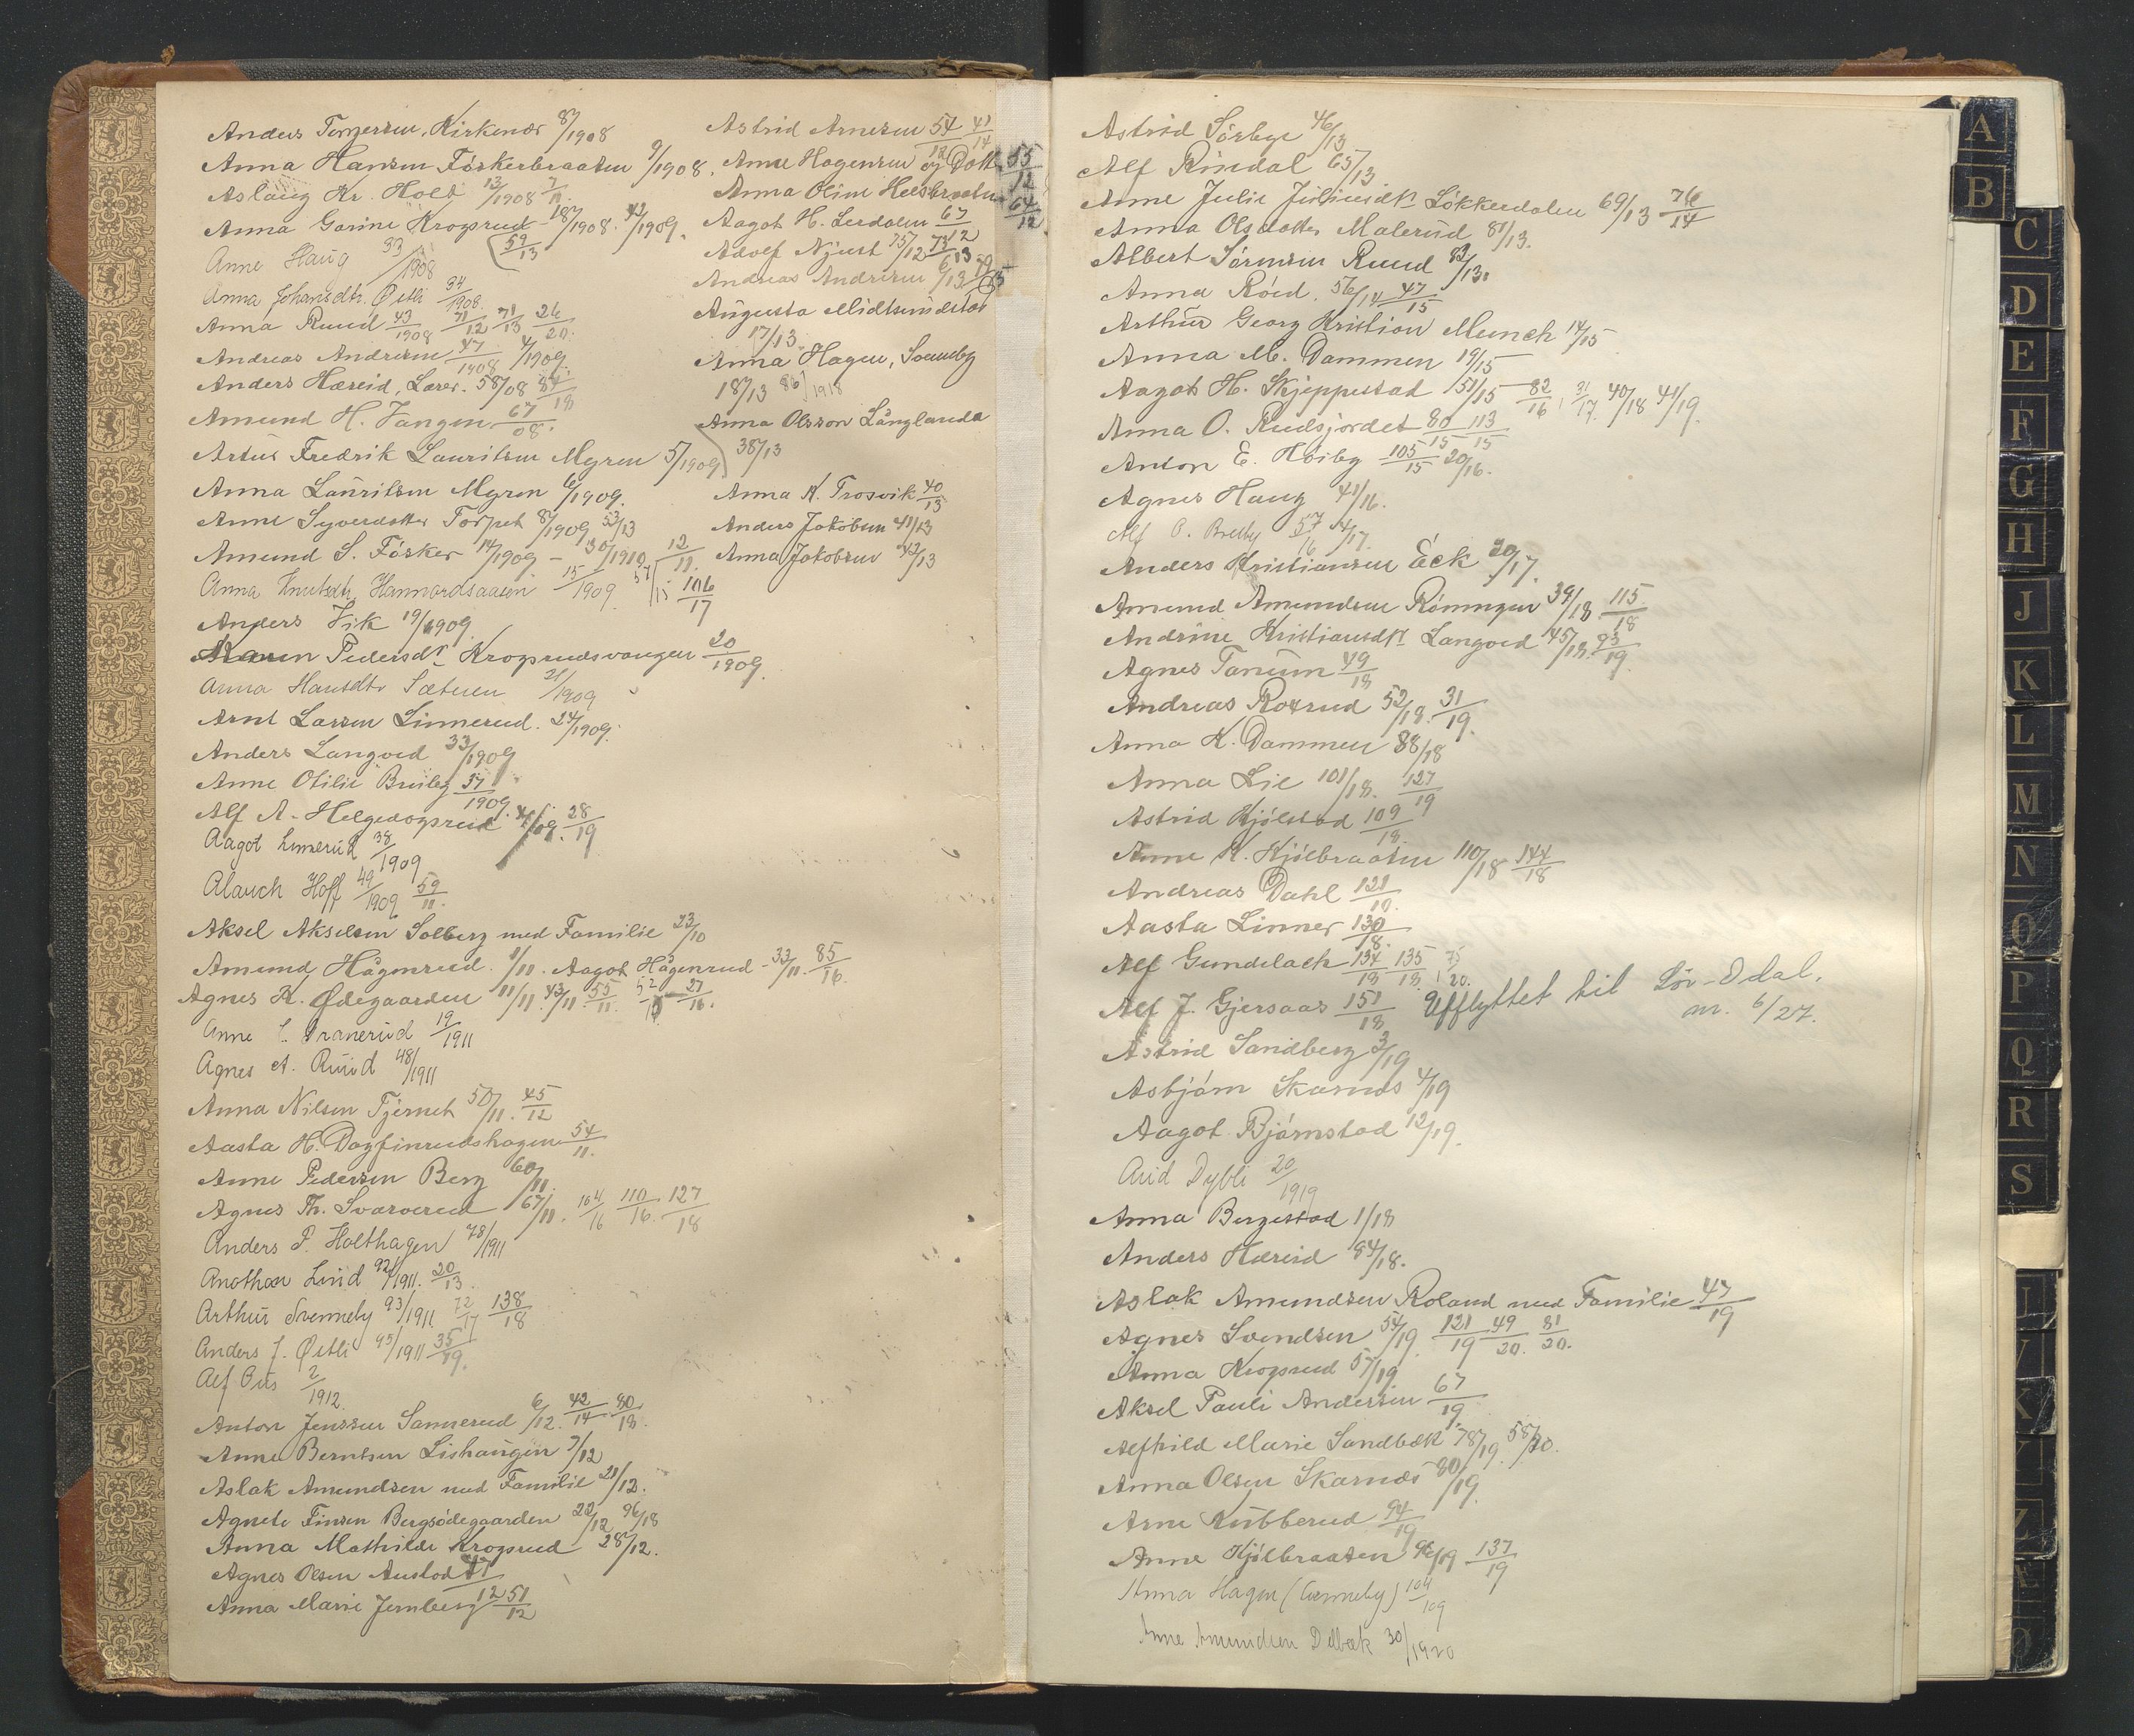 Anders Tomzersen, Kirkenær 8/1908
Anna Hansen Fôskerbraaten 9/1908.
Aslaug Kr. Holt 13/1908 7/11.
Anna Gorine Krogsrud 18/1908. 42/1909. 59/13
Anne Haug 33/1908
Anna Johansdtr. Østli 34/1908.
Anna Ruud 43/1908 71/12 71/13 26/20.
Andreas Andresen 47/1908 4/1909.
Anders Hæreid, Lærer. 58/08 84/18
Amund H. Vangen 67/08.
Artur Fredrik Lauritsen Mgren 5/1909
Anna Lauritsen Mgren 6/1909.
Anne Syverdatter Torpet 8/1909 53/13
Amund S. Fôsker 14/1909 - 30/1910 12/11.
Anna Knutsdtr Hammardsaasen 15/1909. 57/15 106/17
Anders Vik 19/1909.
Karen Pedersdtr. Krogsrudsvangen 20/1909.
Anna Hansdtr Sætuen 21/1909
Arnt Larsen Linnerud. 24/1909.
Anders Langoed 33/1909
Anne Otilie Bruiby 37/1909.
Alf A. Helgedagsrud 4/09. 28/19
Aagot Linnerud 38/1909
Alauch Hoff 49/1909 59/11.
Aksel Akselsen Solberg med Familie 23/10
Amund Hågenrud. 1/11. Aagot Hågenrud - 33/11. 85/16.
Agnes K. Ødegaarden 11/11. 43/11. 55/11. 52/15 27/16.
Anne Granerud 19/1911
Agnes A. Ruud 48/1911
Anna Nilsen Tjernet 50/11. 45/12
Aasta H. Dagfinrudshagen 54/11.
Anne Pedersen Berg 60/11.
Agnes Th. Svarverud 67/11. 104/16 110/16. 127/18
Anders P. Holthagen 78/1911
Anathon Lund 92/1911. 20/13.
Arthur Svenneby 93/1911 72/17 138/18
Anders J. Østli 95/1911 35/19.
Alf Bus 2/1912.
Anton Jenssen Sannerud 6/12. 42/14 80/18.
Anne Berntsen Lishaugen 7/12
Aslak Amundsen med Familie 21/12.
Agnete Finsen Bergsødegaarden 22/12 96/18
Anna Mathilde Krogsrud 28/12.
Agnes Olsen Austad 41/12
Anna Marie Jernberg 51/12
Astrid Arnesen 54/12 41/14
Anne Hagensen og Datt. 55/12
Anna Oline Helsbraaten 64/12
Aagot H. Lerdalen 67/12
Adolf Njust 75/12 73/13
Andreas Andresen 6/13 89/15
Augusta Midtsundstad
17/13.
Anna Hagen, Svenneby
18/13 86/1918
Anna Olsson Långlanda
38/13
Anna K. Trosvik 40/13
Anders Jakobsen 41/13
Anna Jakobsen 42/13
Astrid Sörbye 46/13
Alf Rindal 65/13
Anne Julie Juliusdtr Løkkerdalen 69/13 76/14
Anna Olsdatter Malerud 81/13.
Albert Sörensen Ruud 82/13.
Anna Röed. 56/14 47/15
Arthur Georg Kristian Munch 14/15
Anna M. Dammen 19/15
Aagot H. Skjeppestad 151/15 82/16, 31/17. 40/18 41/19.
Anna O. Rudsjordet 80/15 113/15
Anton E. Höiby 105/15 20/16.
Agnes Haug 41/16.
Alf O. Bredby 57/16 4/17.
Anders Kristiansen Eck 20/17.
Amund Amundsen Rönningen 39/18. 115/18
Andrine Kristiansdtr Langoed 45/18. 93/19.
Agnes Tanum 49/18
Andreas Roxrud 52/18. 31/19.
Anna K. Dammen 88/18
Anna Lie 101/18. 127/19
Astrid Kjölstad 109/18.
Anne K. Kjölbraaten 110/18 144/18
Andreas Dahl 121/18.
Aasta Linner 130/18.
Alf Gundelach 134/18 135/18. 75/20.
Alf J. Gjersaas 151/18 Utflyttet til Sör-Odal.
nr. 6/27.
Astrid Sandberg 3/19
Asbjörn Skarnes 4/19
Aagot Björnstad 12/19.
Arid Dybli 20/1919
Anna Bergestad 1/18
Anders Hæreid 84/18.
Aslak Amundsen Roland med Familie 47/19
Agnes Svendsen 54/19. 121/19 49/20. 81/20.
Anna Krogsrud 57/19
Aksel Pauli Andersen 67/19.
Alfhild Marie Sandbæk 78/19. 58/20.
Anna Olsen Skarnes 80/19.
Arne Kubberud 94/19
Anne Kjölbraaten 96/19 137/19
Anna Hagen (Svenneby) 104/109
Anne Amundsen Delbæk 30/1920
A
B
C
D
E
F
G
H
J
K
L
M
N
O
P
Q
R
S